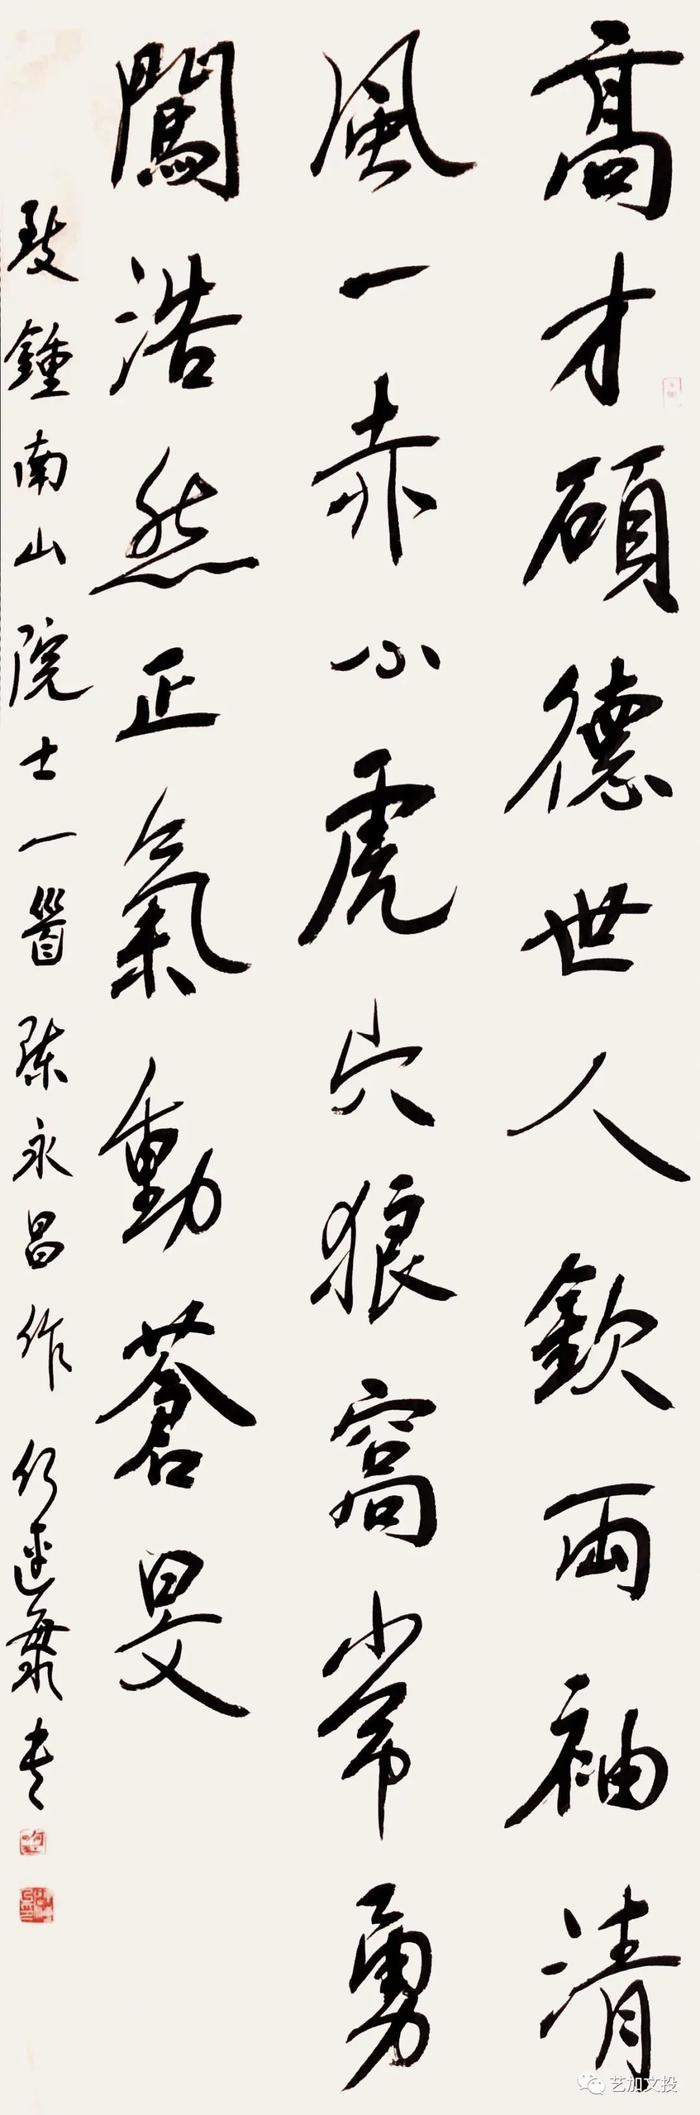 高才碩德世人欽兩袖清
風一赤心虎穴狼窩常勇
闖浩然正氣動蒼旻
致鍾南山院士一首 陳永昌作
艺加文投